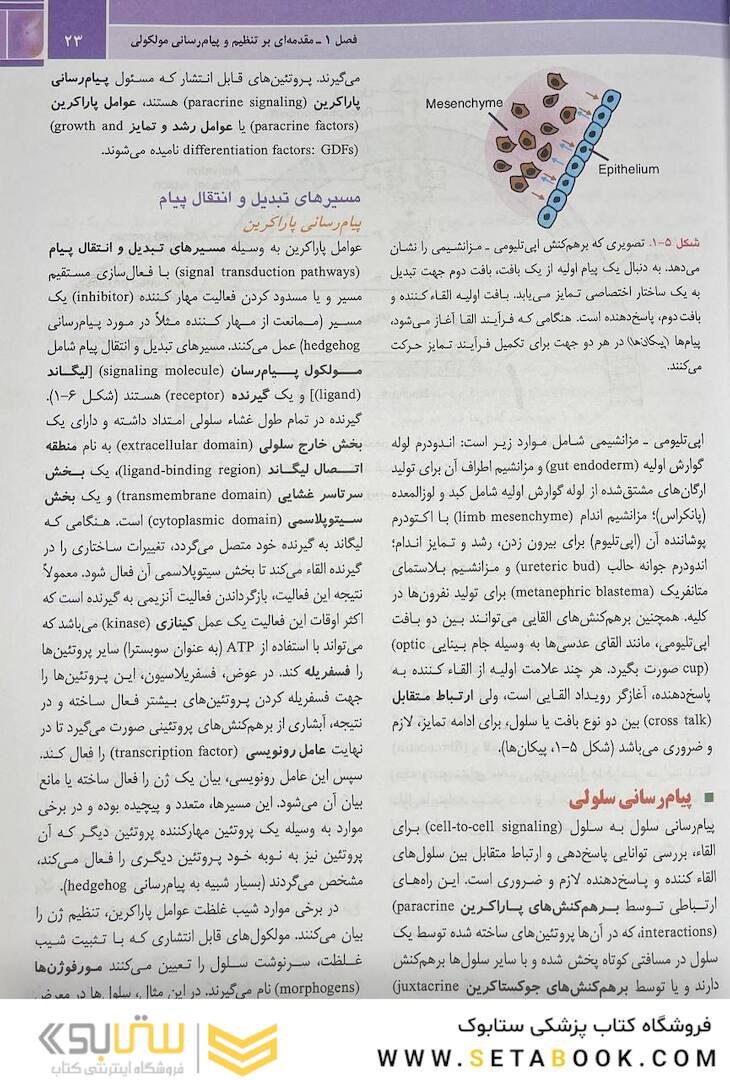 فصل ۱ ـ مقدمه‌ای بر تنظیم و پیام‌رسانی مولکولی
۲۳
Mesenchyme
Epithelium
شکل ۵-۱. تصویری که برهم‌کنش اپی‌تلیومی ـ مزانشیمی را نشان
می‌دهد. به دنبال یک پیام اولیه از یک بافت، بافت دوم جهت تبدیل
به یک ساختار اختصاصی تمایز می‌یابد. بافت اولیه القاء‌کننده و
بافت دوم، پاسخ‌دهنده است. هنگامی که فرآیند القا آغاز می‌شود،
پیام‌ها (پیکان‌ها) در هر دو جهت برای تکمیل فرآیند تمایز حرکت
می‌کنند.
اپی‌تلیومی ـ مزانشیمی شامل موارد زیر است: اندودرم لوله
گوارش اولیه (gut endoderm) و مزانشیم اطراف آن برای تولید
ارگان‌های مشتق‌شده از لوله گوارش اولیه شامل کبد و لوزالمعده
(پانکراس)؛ مزانشیم اندام (limb mesenchyme) با اکتودرم
پوشاننده آن (اپی‌تلیوم) برای بیرون زدن، رشد و تمایز اندام؛
اندودرم جوانه حالب (ureteric bud) و مزانشیم بلاستمای
متانفریک (metanephric blastema) برای تولید نفرون‌ها در
کلیه. همچنین برهم‌کنش‌های القایی می‌توانند بین دو بافت
اپی‌تلیومی، مانند القای عدسی‌ها به وسیله جام بینایی (optic
cup) صورت بگیرد. هر چند علامت اولیه از القاء کننده به
پاسخ‌دهنده، آغازگر رویداد القایی است، ولی ارتباط متقابل
(cross talk) بین دو نوع بافت یا سلول، برای ادامه تمایز، لازم
و ضروری می‌باشد (شکل ۵-۱، پیکان‌ها).
پیام‌رسانی سلولی
پیام‌رسانی سلول به سلول (cell-to-cell signaling) برای
القاء، بررسی توانایی پاسخ‌دهی و ارتباط متقابل بین سلول‌های
القاء کننده و پاسخ‌دهنده لازم و ضروری است. این راه‌های
ارتباطی توسط برهم‌کنش‌های پاراکرین (paracrine
interactions)، که در آن‌ها پروتئین‌های ساخته شده توسط یک
سلول در مسافتی کوتاه پخش شده و با سایر سلول‌ها برهم‌کنش
دارند و یا توسط برهم‌کنش‌های جوکستاکرین (juxtacrine
می‌گیرند. پروتئین‌های قابل انتشار که مسئول پیام‌رسانی
پاراکرین (paracrine signaling) هستند، عوامل پاراکرین
(paracrine factors) یا عوامل رشد و تمایز (growth and
differentiation factors: GDFs) نامیده می‌شوند.
مسیرهای تبدیل و انتقال پیام
پیام‌رسانی پاراکرین
عوامل پاراکرین به وسیله مسیرهای تبدیل و انتقال پیام
(signal transduction pathways) با فعال‌سازی مستقیم
مسیر و یا مسدود کردن فعالیت مهار کننده (inhibitor) یک
مسیر (ممانعت از مهار کننده مثلاً در مورد پیام‌رسانی
hedgehog) عمل می‌کنند. مسیرهای تبدیل و انتقال پیام شامل
مولکول پیام‌رسان (signaling molecule) [لیگاند
(ligand)] و یک گیرنده (receptor) هستند (شکل ۶-۱).
گیرنده در تمام طول غشاء سلولی امتداد داشته و دارای یک
بخش خارج سلولی (extracellular domain) به نام منطقه
اتصال لیگاند (ligand-binding region)، یک بخش
سرتاسر غشایی (transmembrane domain) و یک بخش
سیتوپلاسمی (cytoplasmic domain) است. هنگامی که
لیگاند به گیرنده خود متصل می‌گردد، تغییرات ساختاری را در
گیرنده القاء می‌کند تا بخش سیتوپلاسمی آن فعال شود. معمولاً
نتیجه این فعالیت، بازگرداندن فعالیت آنزیمی به گیرنده است که
اکثر اوقات این فعالیت یک عمل کینازی (kinase) می‌باشد که
می‌تواند با استفاده از ATP (به عنوان سوبسترا) سایر پروتئین‌ها
را فسفریله کند. در عوض، فسفریلاسیون، این پروتئین‌ها را
جهت فسفریله کردن پروتئین‌های بیشتر فعال ساخته و در
نتیجه، آبشاری از برهم‌کنش‌های پروتئینی صورت می‌گیرد تا در
نهایت عامل رونویسی (transcription factor) را فعال کند.
سپس این عامل رونویسی، بیان یک ژن را فعال ساخته یا مانع
بیان آن می‌شود. این مسیرها، متعدد و پیچیده بوده و در برخی
موارد به وسیله یک پروتئین مهارکننده پروتئین دیگر که آن
پروتئین نیز به نوبه خود پروتئین دیگری را فعال می‌کند،
مشخص می‌گردند (بسیار شبیه به پیام‌رسانی hedgehog).
در برخی موارد شیب غلظت عوامل پاراکرین، تنظیم ژن را
بیان می‌کنند. مولکول‌های قابل انتشاری که با تثبیت شیب
غلظت، سرنوشت سلول را تعیین می‌کنند مورفوژن‌ها
(morphogens) نام می‌گیرند. در این مثال، سلول‌ها در معرض
فروشگاه کتاب پزشکی ستابوک
WWW.SETABOOK.COM
ستابوک
فروشگاه اینترنتی کتاب